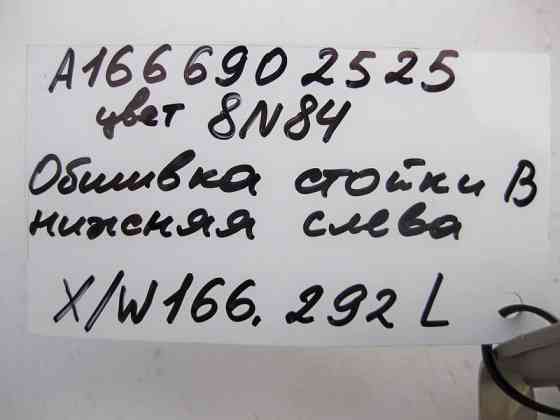 A166 690 2525
цвет 8N84
Обшивка стойки В
нижняя слева
X/W166. 292 L